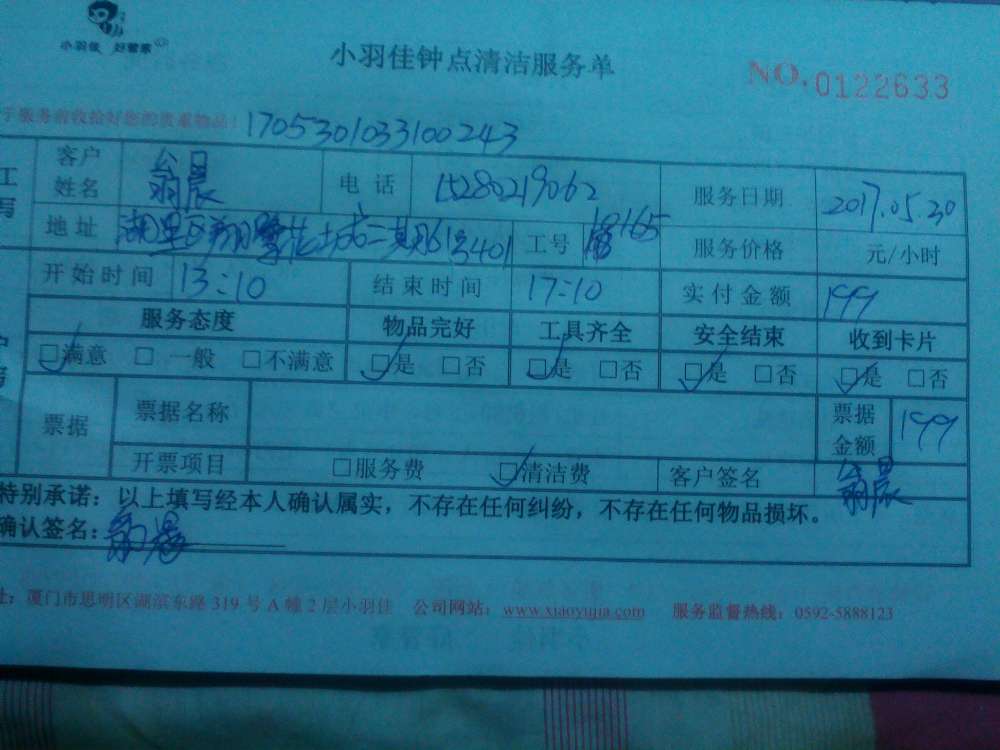 小羽佳 好管家
小羽佳钟点清洁服务单
NO.0122633
于服务前收拾好您的贵重物品!
1705301033100243
工
客户姓名 翁晨 电话 15280219062 服务日期 2017.05.30
地址 湖里区 二期61号401 工号 165 服务价格 元/小时
开始时间 13:10 结束时间 17:10 实付金额 199
服务态度 物品完好 工具齐全 安全结束 收到卡片
满意 一般 不满意 是 否 是 否 是 否 是 否
票据 票据名称 票据金额 199
开票项目 服务费 清洁费 客户签名 翁晨
特别承诺：以上填写经本人确认属实，不存在任何纠纷，不存在任何物品损坏。
确认签名：翁晨
址：厦门市思明区湖滨东路 319 号 A 幢 2 层小羽佳 公司网站：www.xiaoyujia.com 服务监督热线：0592-5888123